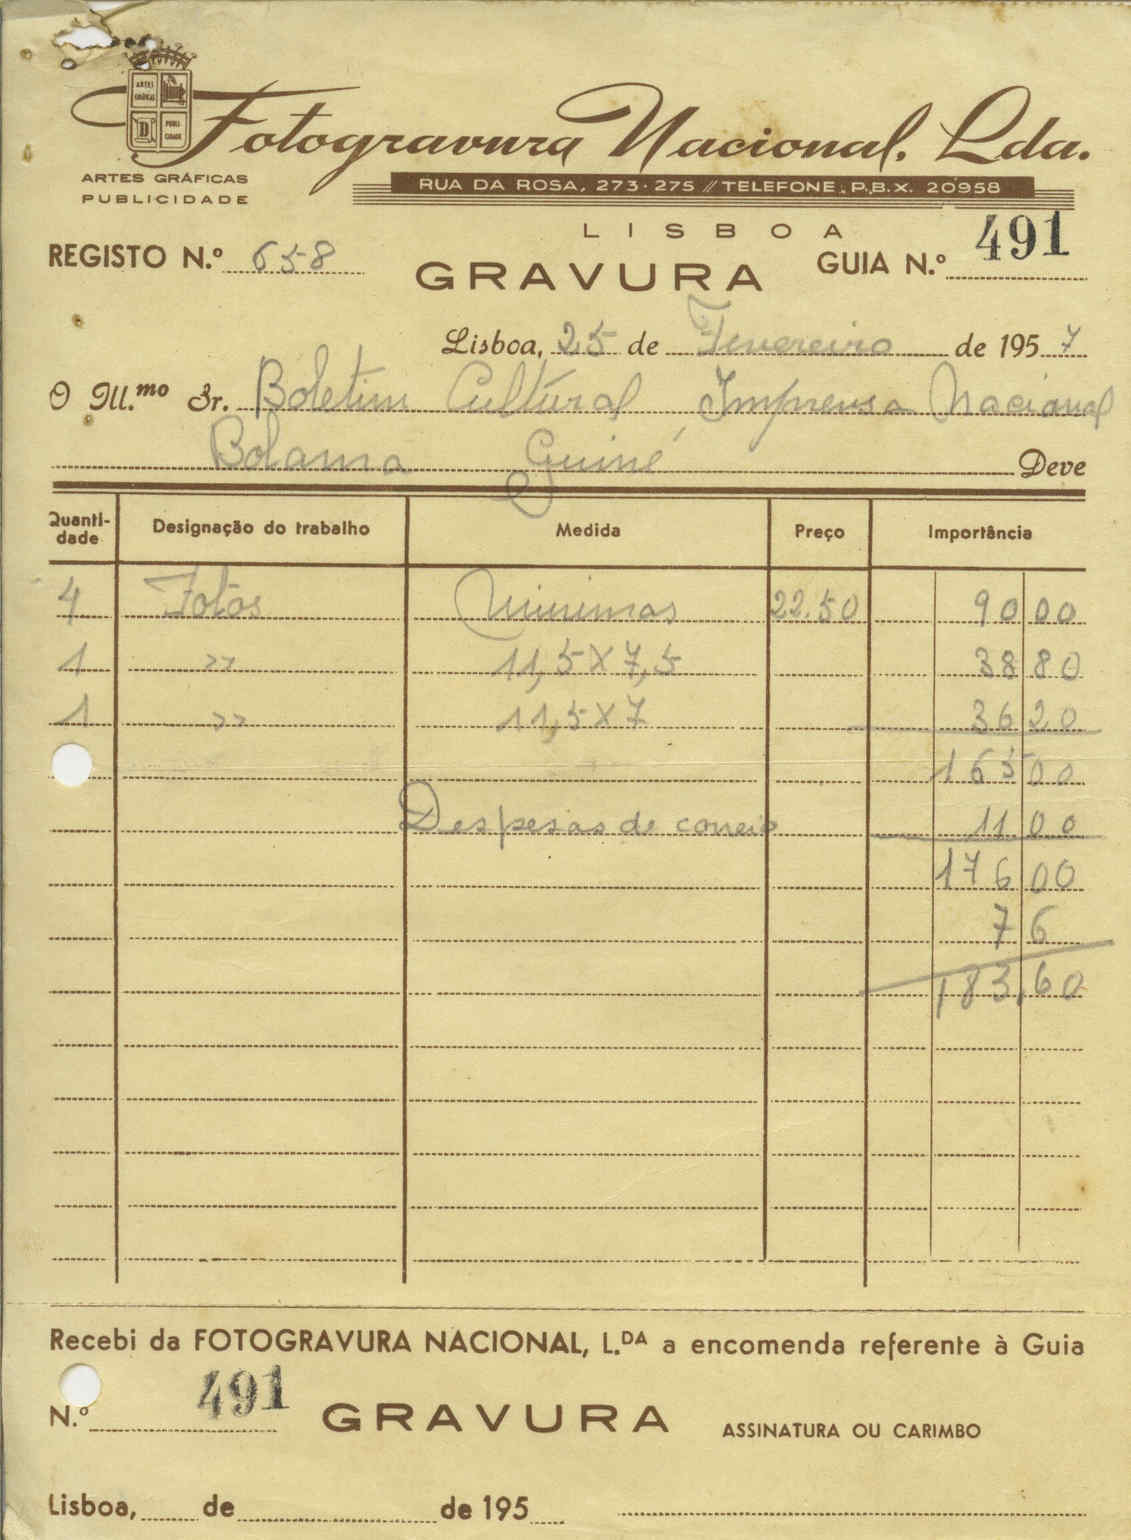 ARTES GRÁFICAS PUBLI CIDADE
Fotogravura Nacional, Lda.
ARTES GRÁFICAS
PUBLICIDADE
RUA DA ROSA, 273-275 // TELEFONE, P.B.X. 20958
LISBOA
REGISTO N.º 658
GRAVURA
GUIA N.º 491
Lisboa, 25 de Fevereiro de 1957
O Ill.mo Sr. Boletim Cultural Imprensa Nacional
Bolama Guiné Deve
Quanti-dade Designação do trabalho Medida Preço Importância
4 Fotos Minimas 22.50 90 00
1 >> 11,5 X 7,5 38 80
1 >> 11,5 X 7 36 20
165 00
Despesas de correio 11 00
176 00
7 6
183,60
Recebi da FOTOGRAVURA NACIONAL, L.DA a encomenda referente à Guia
N.º 491 GRAVURA ASSINATURA OU CARIMBO
Lisboa, de de 195